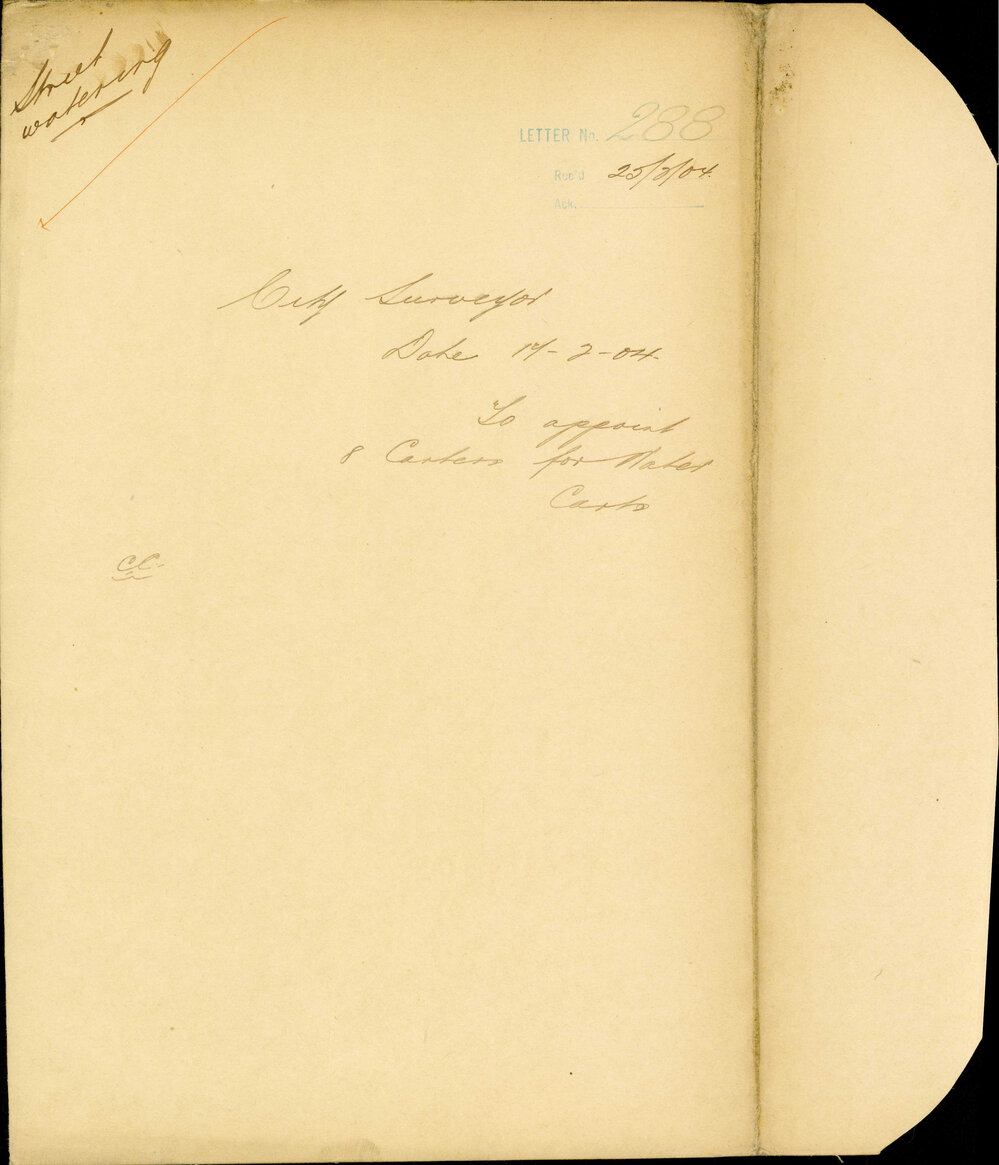 Street
watering
LETTER No. 288
Rec'd 25/2/04
Ack.
City Surveyor
Date 17-2-04
To appoint
8 Carters for Water
Carts
CC.